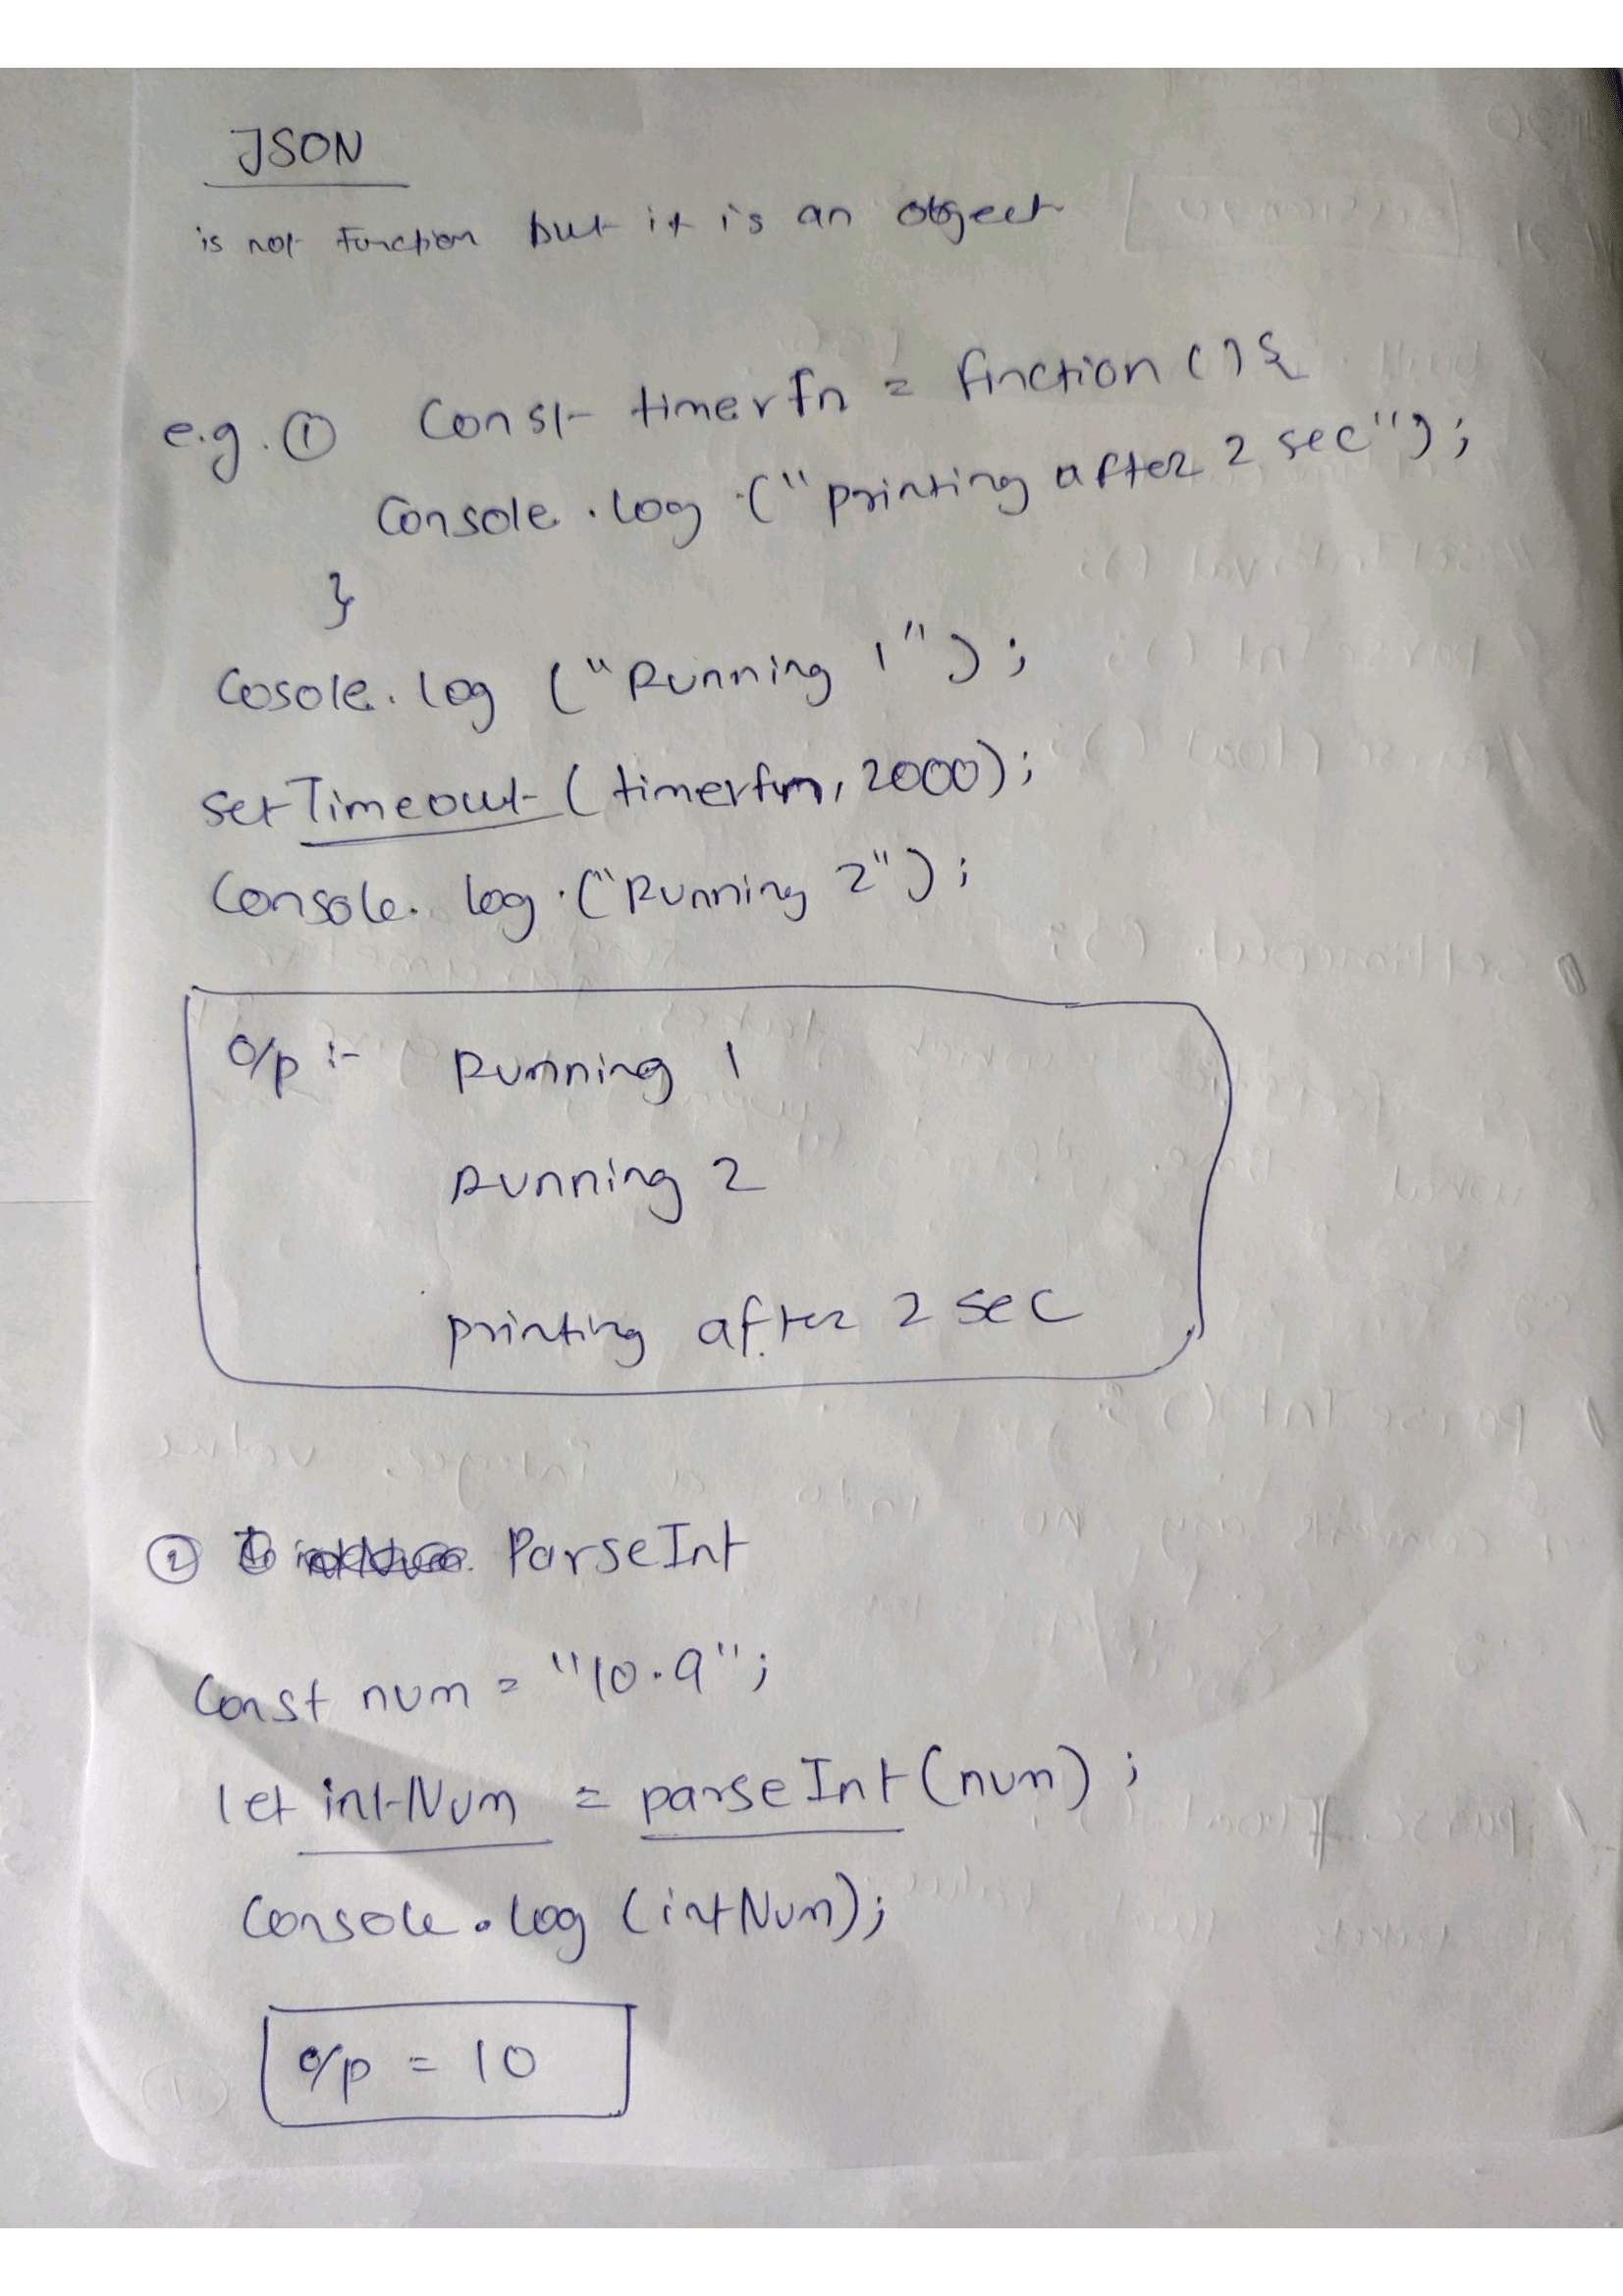 JSON
is not function but it is an object
e.g. ① Const timerfn = finction () {
Console.log ("printing after 2 sec");
}
Cosole.log ("Running 1");
setTimeout (timerfn, 2000);
Console.log ("Running 2");
o/p :- Running 1
Running 2
printing after 2 sec
② ParseInt
Const num = "10.9";
let intNum = parseInt(num);
Console.log (intNum);
o/p = 10